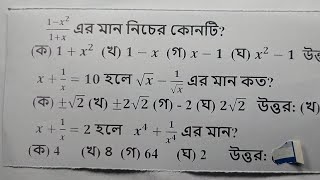 $\frac{1-x^2}{1+x}$ এর মান নিচের কোনটি?
(ক) $1+x^2$ (খ) $1-x$ (গ) $x-1$ (ঘ) $x^2-1$
$x+\frac{1}{x}=10$ হলে $\sqrt{x}-\frac{1}{\sqrt{x}}$ এর মান কত?
(ক) $\pm\sqrt{2}$ (খ) $\pm2\sqrt{2}$ (গ) - 2 (ঘ) $2\sqrt{2}$ উত্তর: (খ)
$x+\frac{1}{x}=2$ হলে $x^4+\frac{1}{x^4}$ এর মান?
(ক) 4 (খ) 8 (গ) 64 (ঘ) 2 উত্তর: